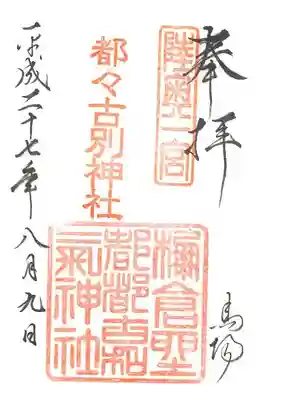 奉拝
馬場
陸奧一宮
都々古別神社
都都古和
氣神社
平成二十七年八月九日